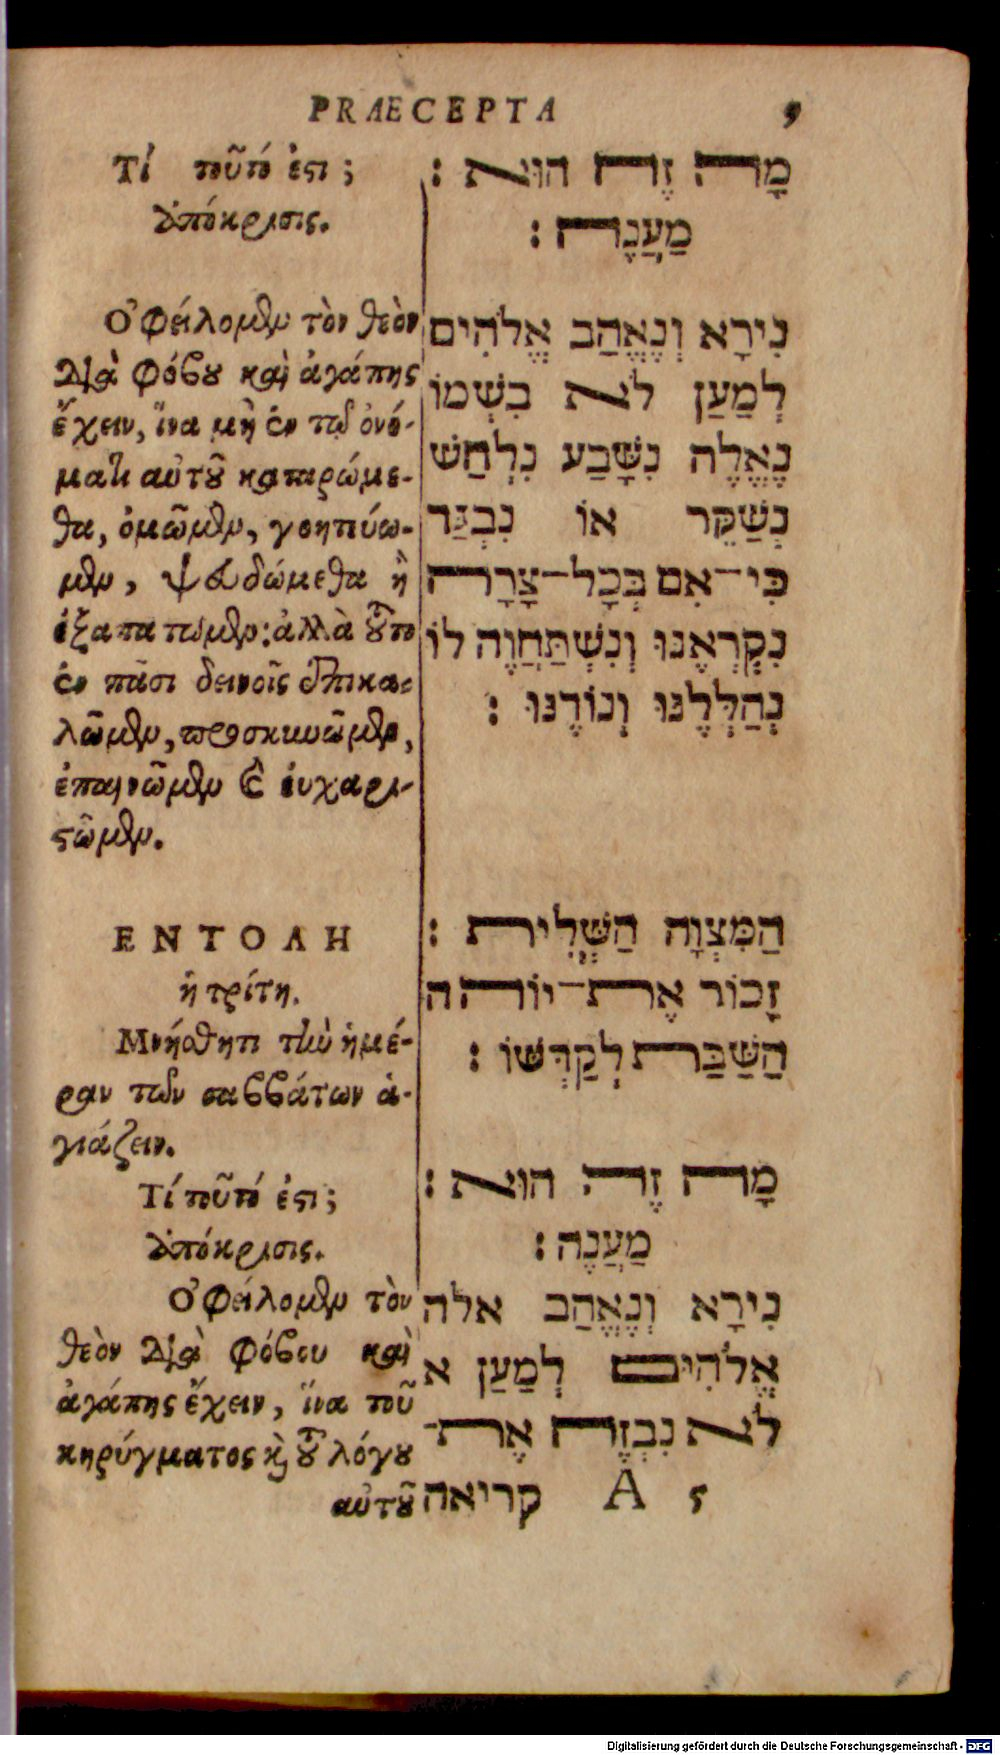 PRAECEPTA 9
Τί τοῦτό ἐστι;
ἀπόκρισις.
Οφείλομεν τὸν θεὸν
διὰ φόβου καὶ ἀγάπης
ἔχειν, ἵνα μὴ ἐν τῷ ὀνό-
ματι αὐτοῦ καταρώμε-
θα, ὀμῶμεν, γοητεύω-
μεν, ψευδώμεθα ἢ
ἐξαπατῶμεν: ἀλλὰ τοῦτο
ἐν πᾶσι δεινοῖς ἐπικα-
λῶμεν, προσκυνῶμεν,
ἐπαινῶμεν καὶ εὐχαρι-
στῶμεν.
ΕΝΤΟΛΗ
ἡ τρίτη.
Μνήσθητι τὴν ἡμέ-
ραν τῶν σαββάτων ἁ-
γιάζειν.
Τί τοῦτό ἐστι;
ἀπόκρισις.
Οφείλομεν τὸν
θεὸν διὰ φόβου καὶ
ἀγάπης ἔχειν, ἵνα τοῦ
κηρύγματος καὶ τοῦ λόγου
αὐτοῦ
מָה זֶה הוּא :
מַעֲנֶה :
נִירָא וְנֶאֱהַב אֱלֹהִים
לְמַעַן לֹא בִשְׁמוֹ
נֶאֱלֶה נִשָּׁבַע נִלְחַשׁ
נְשַׁקֵּר אוֹ נִבְגַּד
כִּי־אִם בְּכָל־צָרָה
נִקְרְאֶנּוּ וְנִשְׁתַּחֲוֶה לוֹ
נְהַלְלֶנּוּ וְנוֹדֶנּוּ :
הַמִּצְוָה הַשְּׁלִישִׁית :
זָכוֹר אֶת־יוֹם ה
הַשַּׁבָּת לְקַדְּשׁוֹ :
מָה זֶה הוּא :
מַעֲנֶה :
נִירָא וְנֶאֱהַב אלה
אֱלֹהִים לְמַעַן א
לֹא נִבְזֶה אֶת־
קריאה
A 5
Digitalisierung gefördert durch die Deutsche Forschungsgemeinschaft - DFG